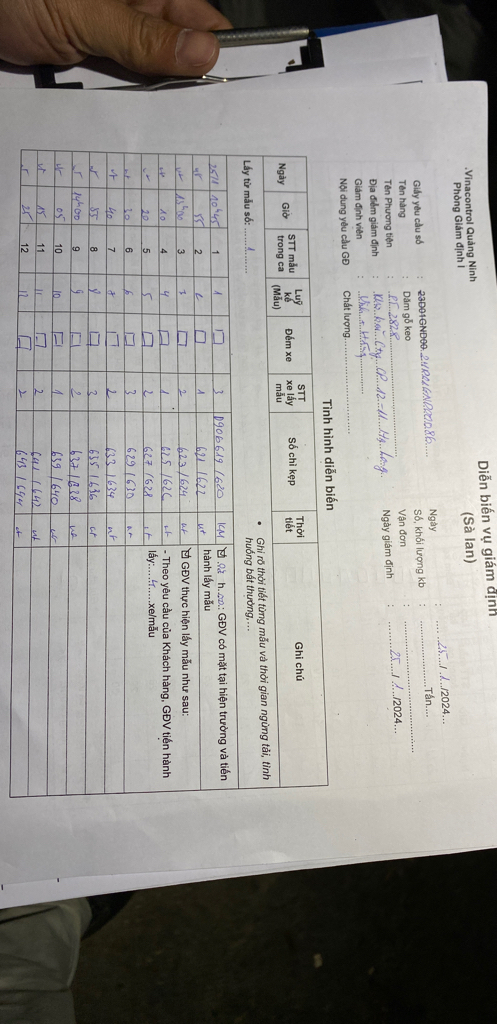 .Vinacontrol Quảng Ninh
Phòng Giám định I
Diễn biến vụ giám định
(Sà lan)
Giấy yêu cầu số :
Tên hàng : Dăm gỗ keo
Tên Phương tiện : 2828
Địa điểm giám định :
Giám định viên :
Nội dung yêu cầu GĐ : Chất lượng
Ngày : 25 / 1 /2024
Số, khối lượng kb : Tấn
Vận đơn :
Ngày giám định : 25 / 1 /2024
Tình hình diễn biến
Ngày Giờ STT mẫu trong ca Luỹ kế (Mẫu) Đếm xe STT xe lấy mẫu Số chì kẹp Thời tiết Ghi chú
Lấy từ mẫu số: 1
• Ghi rõ thời tiết từng mẫu và thời gian ngừng tải, tình huống bất thường....
25/1 10h45 1 1 3 0906619 / 620 KM
55 2 2 1 621 / 622
13h00 3 3 2 623 / 624
10 4 4 1 625 / 626
20 5 5 2 627 / 628
30 6 6 3 629 / 630
40 7 7 2 633 / 634
55 8 8 3 635 / 636
14h00 9 9 2 637 / 638
05 10 10 1 639 / 640
15 11 11 2 641 / 642
25 12 12 2 643 / 644
h 00 : GĐV có mặt tại hiện trường và tiến hành lấy mẫu
GĐV thực hiện lấy mẫu như sau:
- Theo yêu cầu của Khách hàng, GĐV tiến hành
lấy: xe/mẫu